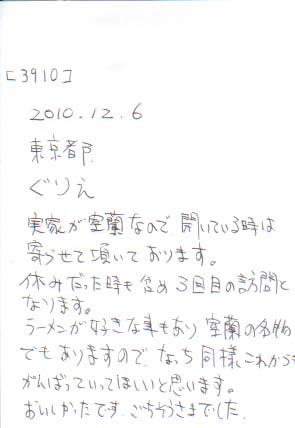 [3910]
2010.12.6
東京都
ぐりえ
実家が室蘭なので 開いている時は
寄らせて頂いております。
休みだった時も含め 3回目の訪問と
なります。
ラーメンが好きな事もあり 室蘭の名物
でもありますので、なっち同様 これからも
がんばっていってほしいと思います。
おいしかったです。ごちそうさまでした。